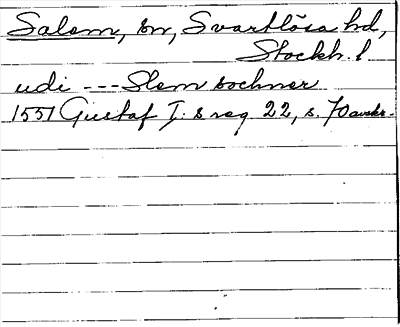 Salem, sn, Svartlösa hd,
Stockh. l
udi --- Slem sochner
1551 Gustaf I:s reg 22, s. 70 avskr.